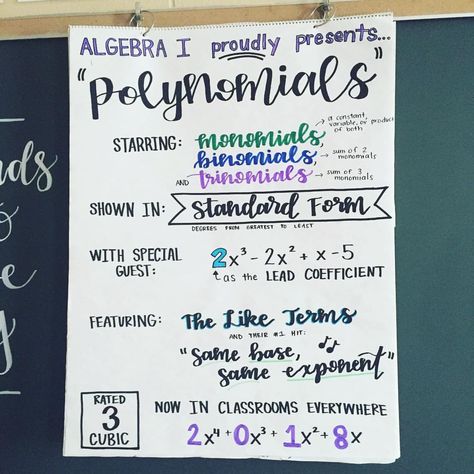 ALGEBRA I proudly presents...
"Polynomials"
STARRING: monomials, → a constant, variable, or product of both
binomials, → sum of 2 monomials
AND trinomials → sum of 3 monomials
SHOWN IN: Standard Form
DEGREES FROM GREATEST TO LEAST
WITH SPECIAL GUEST: 2x³ - 2x² + x - 5
as the LEAD COEFFICIENT
FEATURING: The Like Terms
AND THEIR #1 HIT:
"Same base,
same exponent"
RATED
3
CUBIC
NOW IN CLASSROOMS EVERYWHERE
2x⁴ + 0x³ + 1x² + 8x